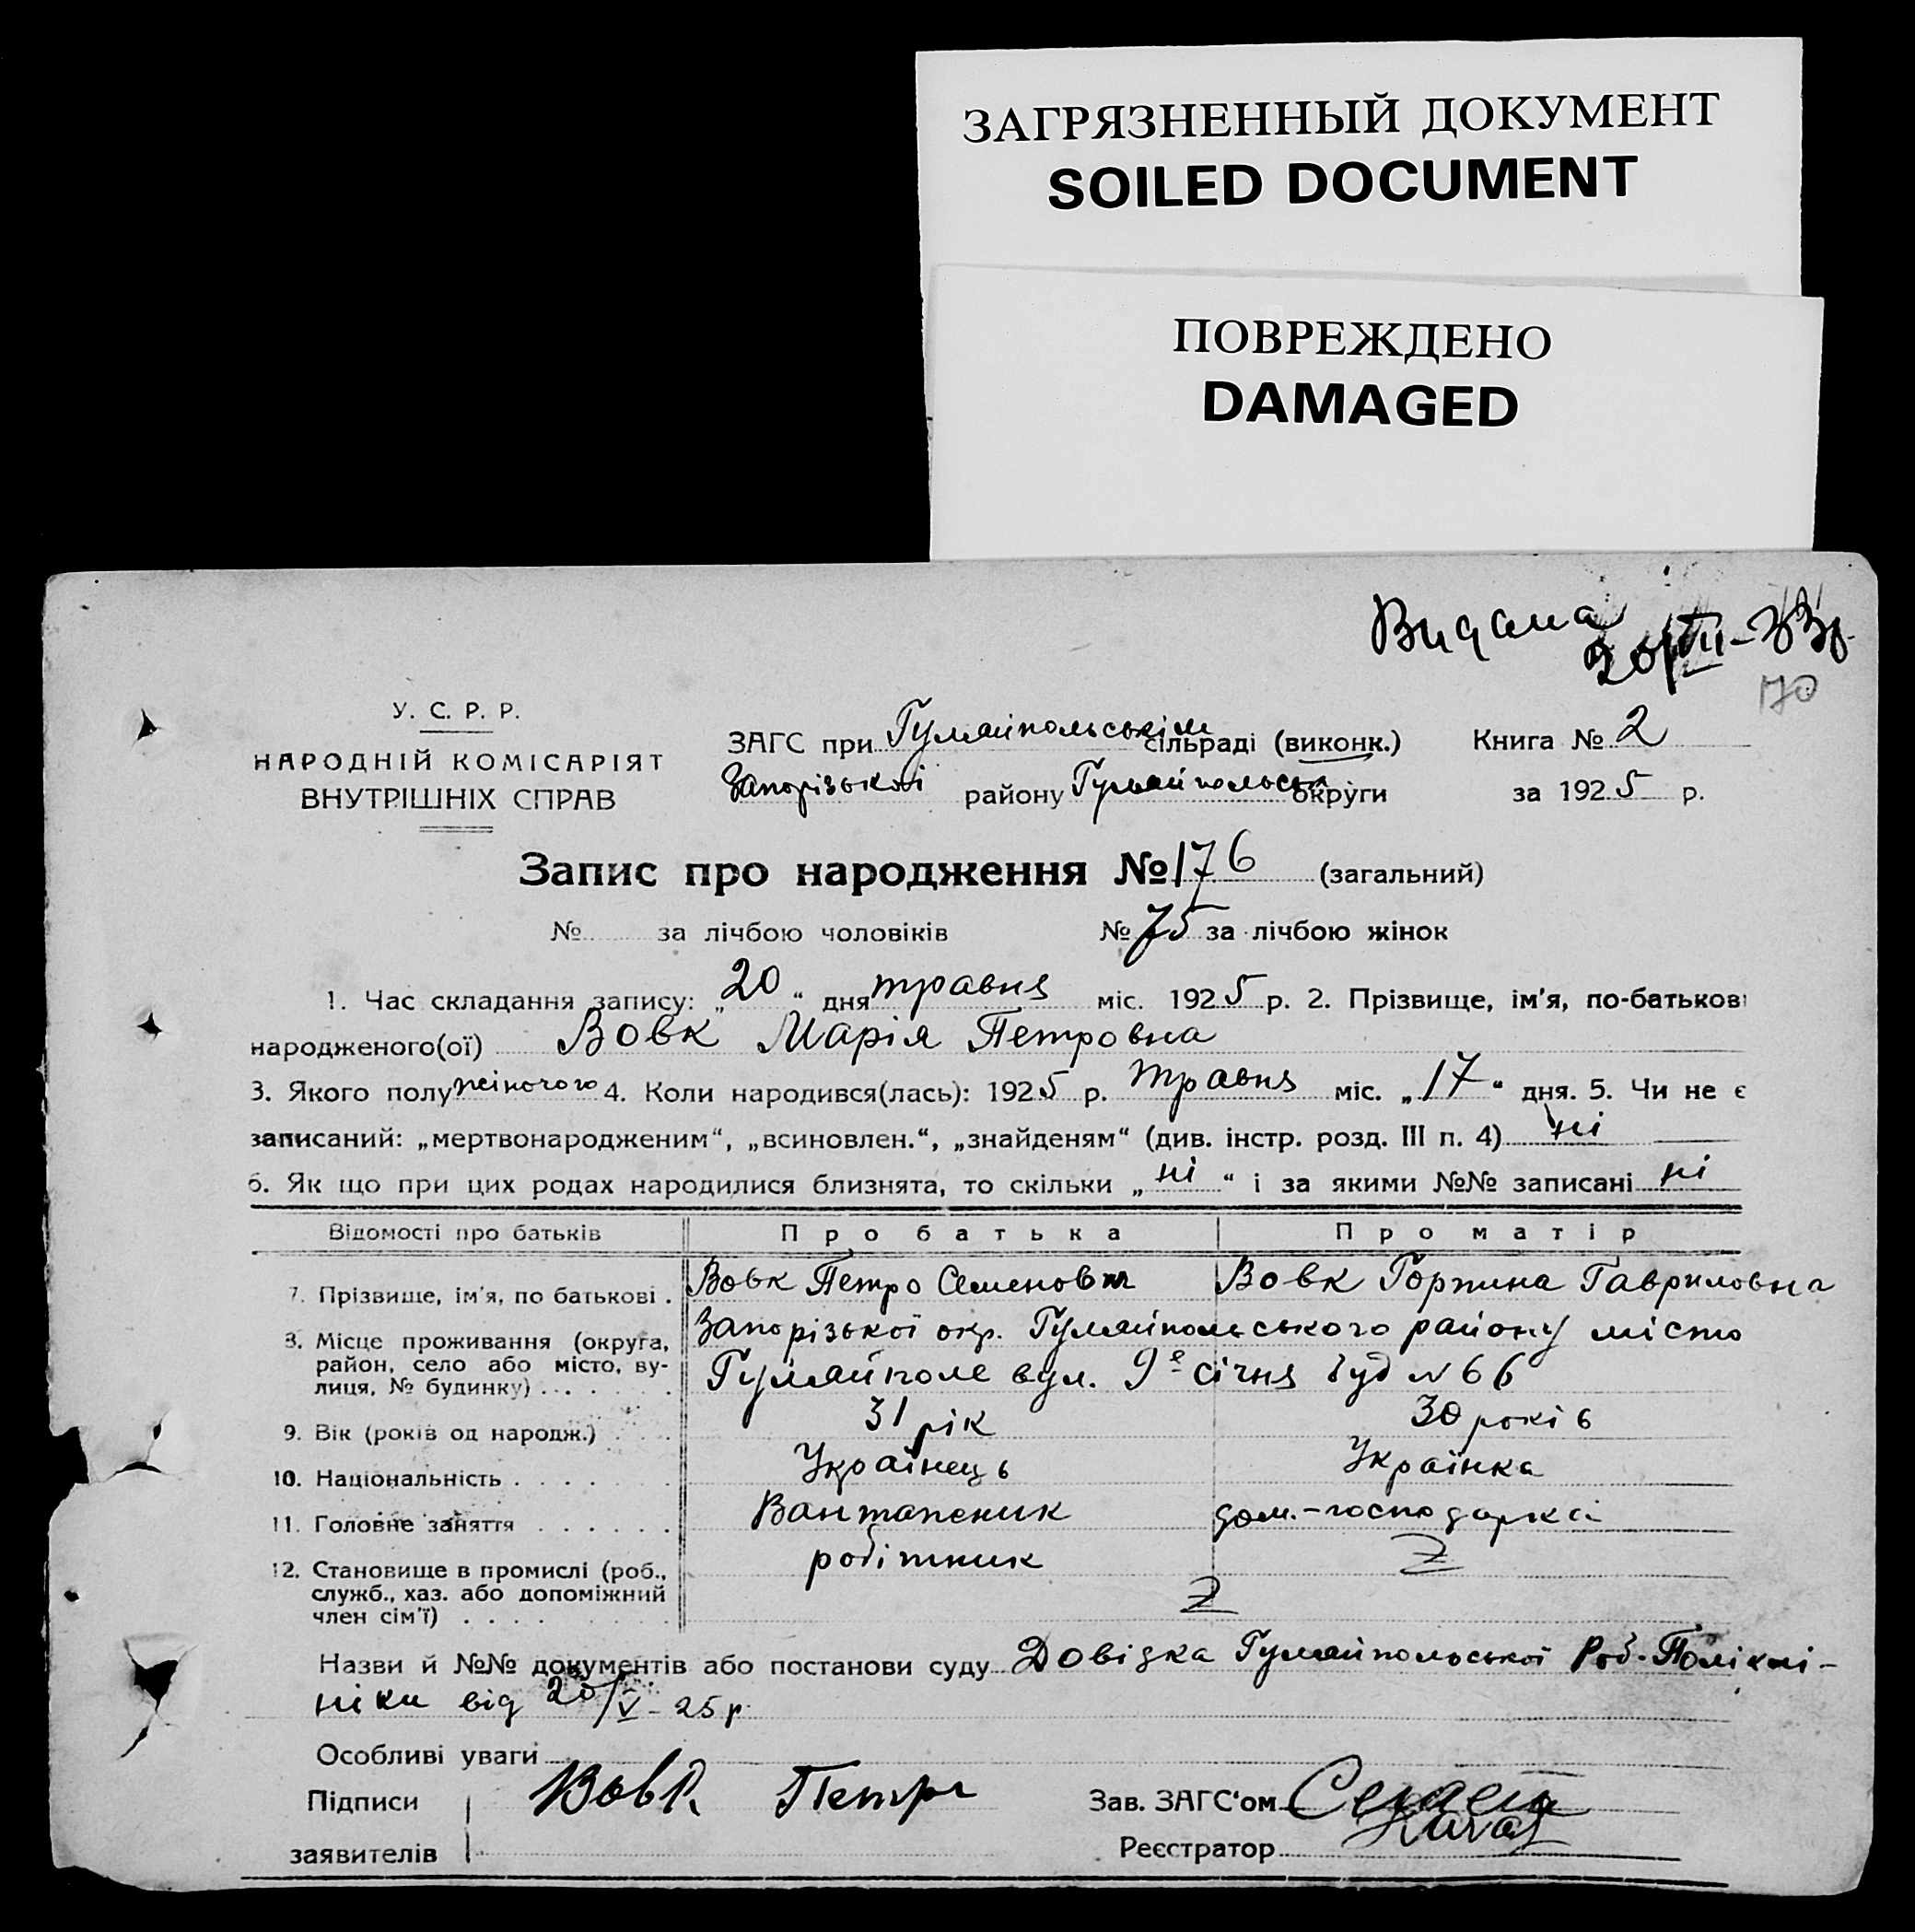 ЗАГРЯЗНЕННЫЙ ДОКУМЕНТ
SOILED DOCUMENT
ПОВРЕЖДЕНО
DAMAGED
Видана
20/VII-33р.
170
У. С. Р. Р.
НАРОДНІЙ КОМІСАРІЯТ
ВНУТРІШНІХ СПРАВ
ЗАГС при Гуляйпольськім сільраді (виконк.) Книга № 2
Запорізької району Гуляйпольськ округи за 1925 р.
Запис про народження № 176 (загальний)
№ за лічбою чоловіків № 75 за лічбою жінок
1. Час складання запису: „20“ дня травня міс. 1925 р. 2. Прізвище, ім'я, по-батькові
народженого(ої) Вовк Марія Петровна
3. Якого полу жіночого 4. Коли народився(лась): 1925 р. травня міс. „17“ дня. 5. Чи не є
записаний: „мертвонародженим“, „всиновлен.“, „знайденям“ (див. інстр. розд. III п. 4) ні
6. Як що при цих родах народилися близнята, то скільки „ні“ і за якими №№ записані ні
Відомості про батьків Про батька Про матір
7. Прізвище, ім'я, по батькові . Вовк Петро Семенович Вовк Горпина Гавриловна
8. Місце проживання (округа, район, село або місто, вулиця, № будинку) . . . Запорізької окр. Гуляйпольського району місто
Гуляйполе вул. 9е січня буд № 66
9. Вік (років од народж.) . . . 31 рік 30 років
10. Національність . . . . Українець Українка
11. Головне заняття . . . . Вантажник дом.-господарка
12. Становище в промислі (роб., служб., хаз. або допоміжний член сім'ї) . . . . робітник Z
Z
Назви й №№ документів або постанови суду Довідка Гуляйпольської Роб. Полікні-
ніки від 20/V-25р.
Особливі уваги
Підписи Вовк Петро Зав. ЗАГС'ом
заявителів Реєстратор